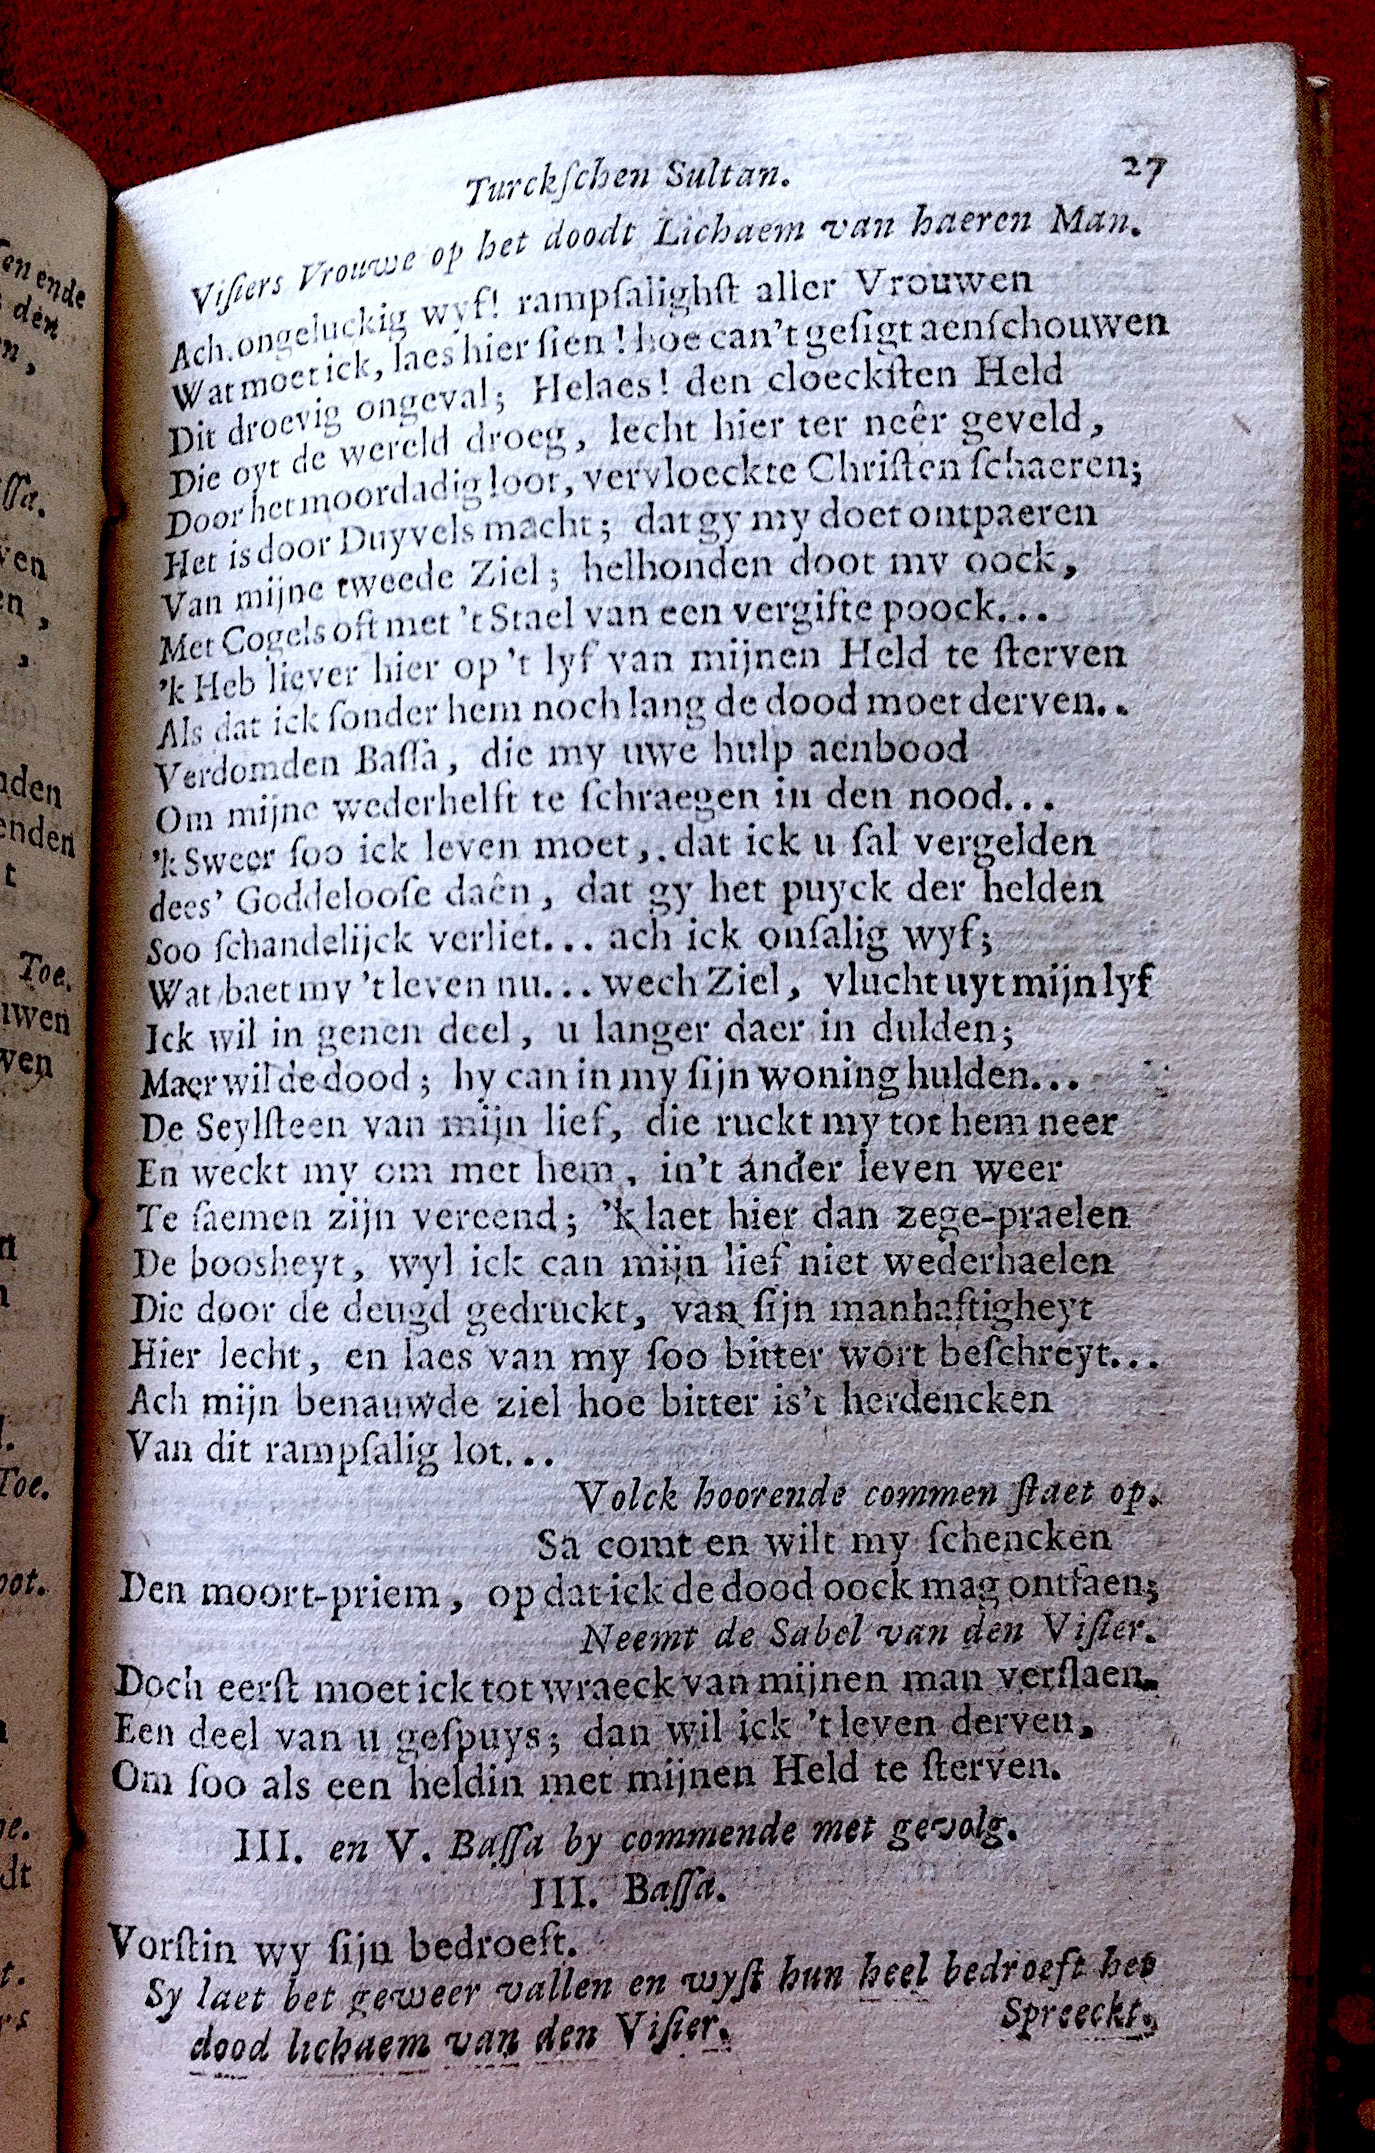 Turckſchen Sultan. 27
Viſiers Vrouwe op het doodt Lichaem van haeren Man.
Ach ongeluckig wyf! rampſalighſt aller Vrouwen
Wat moet ick, laes hier ſien! hoe can't geſigt aenſchouwen
Dit droevig ongeval; Helaes! den cloeckſten Held
Die oyt de wereld droeg, lecht hier ter neêr geveld,
Door het moordadig loot, vervloeckte Chriſten ſchaeren;
Het is door Duyvels macht; dat gy my doet ontpaeren
Van mijne tweede Ziel; helhonden doot my oock,
Met Cogels oft met 't Stael van een vergifte poock...
'k Heb liever hier op 't lyf van mijnen Held te ſterven
Als dat ick ſonder hem noch lang de dood moet derven..
Verdomden Baſſà, die my uwe hulp aenbood
Om mijne wederhelft te ſchraegen in den nood...
'k Sweer ſoo ick leven moet,. dat ick u ſal vergelden
dees' Goddelooſe daên, dat gy het puyck der helden
Soo ſchandelijck verliet... ach ick onſalig wyf;
Wat baet my 't leven nu... wech Ziel, vlucht uyt mijn lyf
Ick wil in genen deel, u langer daer in dulden;
Maer wil de dood; hy can in my ſijn woning hulden...
De Seylſteen van mijn lief, die ruckt my tot hem neer
En weckt my om met hem, in't ander leven weer
Te ſaemen zijn vereend; 'k laet hier dan zege-praelen
De boosheyt, wyl ick can mijn lief niet wederhaelen
Die door de deugd gedruckt, van ſijn manhaftigheyt
Hier lecht, en laes van my ſoo bitter wort beſchreyt...
Ach mijn benauwde ziel hoe bitter is't herdencken
Van dit rampſalig lot...
Volck hoorende commen ſtaet op.
Sa comt en wilt my ſchencken
Den moort-priem, op dat ick de dood oock mag ontfaen;
Neemt de Sabel van den Viſier.
Doch eerſt moet ick tot wraeck van mijnen man verſlaen.
Een deel van u geſpuys; dan wil ick 't leven derven,
Om ſoo als een heldin met mijnen Held te ſterven.
III. en V. Baſſa by commende met gevolg.
III. Baſſa.
Vorſtin wy ſijn bedroeft.
Sy laet het geweer vallen en wyſt hun heel bedroeft het
dood lichaem van den Viſier. Spreeckt.